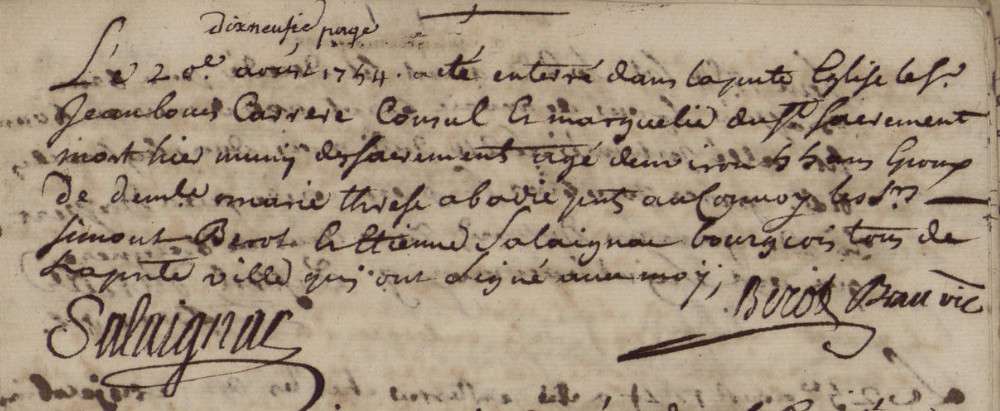 dixneufie page
Le 28e. août 1754. a été enterré dans la pnte Eglise le Sr.
Jean louis Carrere Consul Et marguelié du St. Sacrement
mort hier muny des sacrement agé denviron 55 ans Epoux
de demlle marie threse abadie pnts au Convoy les Srs
simont Berot Et Etienne Salaignac bourgeois tous de
La pnte ville qui ont signé avec moy,
Salaignac
Berot
vic